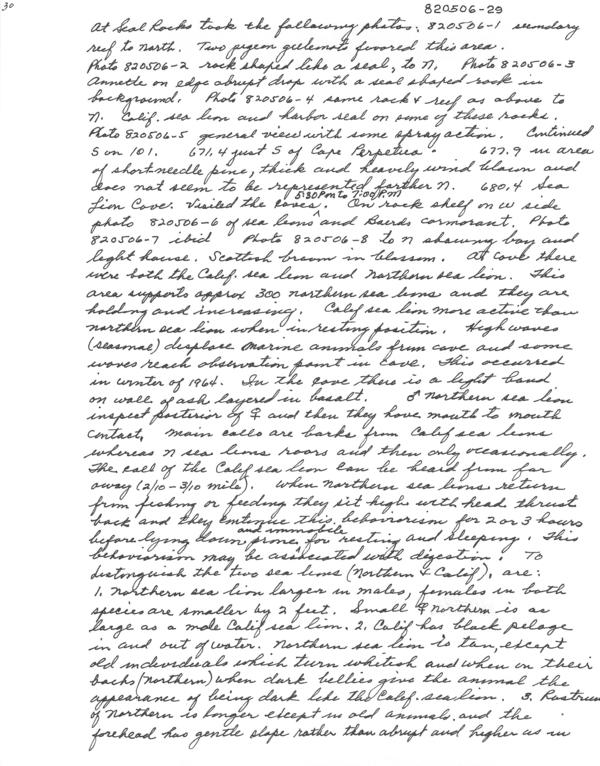 30
820506-29
At Seal Rocks took the following photos: 820506-1 secondary
reef to North. Two pigeon guillemots favored this area.
Photo 820506-2 rock shaped like a seal, to N. Photo 820506-3
Annette on edge abrupt drop with a seal shaped rock in
background. Photo 820506-4 same rock & reef as above to
N. Calif. sea lion and harbor seal on some of these rocks.
Photo 820506-5 general view with some spray action. Continued
S on 101. 671.4 just S of Cape Perpetua. 677.9 in area
of short needle pine, thick and heavily wind blown and
does not seem to be represented farther N. 680.4 Sea
Lion Cove. Visited the coves 5:30 PM to 7:00 PM. On rock shelf on W side
photo 820506-6 of sea lions and Bairds cormorant. Photo
820506-7 ibid Photo 820506-8 to N showing bay and
light house. Scottish broom in blossom. At cove there
were both the Calif. sea lion and northern sea lion. This
area supports approx 300 northern sea lions and they are
holding and increasing. Calif sea lion more active than
northern sea lion when in resting position. High waves
(seasonal) displace marine animals from cave and some
waves reach observation point in cave. This occurred
in winter of 1964. In the cave there is a light band
on wall of ash layered in basalt. ♂ Northern sea lion
inspect posterior of ♀ and then they have mouth to mouth
contact. Main calls are barks from Calif sea lions
whereas N sea lions roars and then only occasionally.
The call of the Calif sea lion can be heard from far
away (2/10 - 3/10 mile). When Northern sea lions return
from fishing or feeding they sit high with head thrust
back and they continue this behaviorism for 2 or 3 hours
before lying down prone and immobile for resting and sleeping. This
behaviorism may be associated with digestion. To
distinguish the two sea lions (Northern & Calif), are:
1. Northern sea lion larger in males, females in both
species are smaller by 2 feet. Small ♀ Northern is as
large as a male Calif sea lion. 2. Calif has black pelage
in and out of water. Northern sea lion is tan, except
old individuals which turn whitish and when on their
backs (Northern) when dark bellies give the animal the
appearance of being dark like the Calif. sea lion. 3. Rostrum
of Northern is longer except in old animals and the
forehead has gentle slope rather than abrupt and higher as in